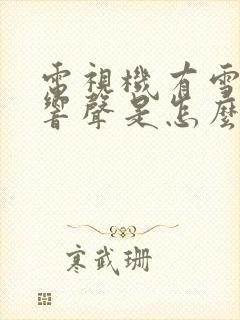 電視機有雪
響聲是怎麼
寒武珊